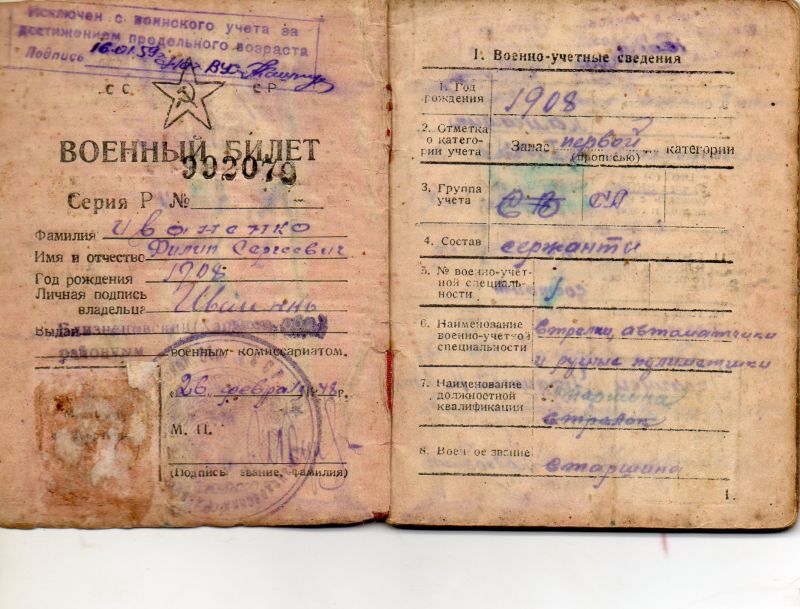 Исключен с воинского учета за
достижением предельного возраста
Подпись 16.01.59
СС СР
ВОЕННЫЙ БИЛЕТ
992079
Серия Р №
Фамилия Иваненко
Имя и отчество Филип Сергеевич
Год рождения 1908
Личная подпись
владельца
Выдан Близнецовский
районным военным комиссариатом.
„26 февра 1948 г.
М. П.
(Подпись, звание, фамилия)
1. Военно-учетные сведения
1. Год
рождения 1908
2. Отметка
о катего-
рии учета Запас первой категории
(прописью)
3. Группа
учета СВ СА
4. Состав сержанты
5. № военно-учет-
ной специаль-
ности 1
6. Наименование
военно-учетной
специальности стрелки, автоматчики
и ручные пулиметчики
7. Наименование
должностной
квалификации старшина
стрелок
8. Военное звание старшина
1.